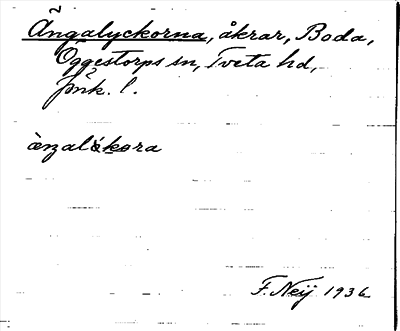 Ängalyckorna, åkrar, Boda,
Öggestorps sn, Tveta hd,
Jönk. l.
F. Neij 1936